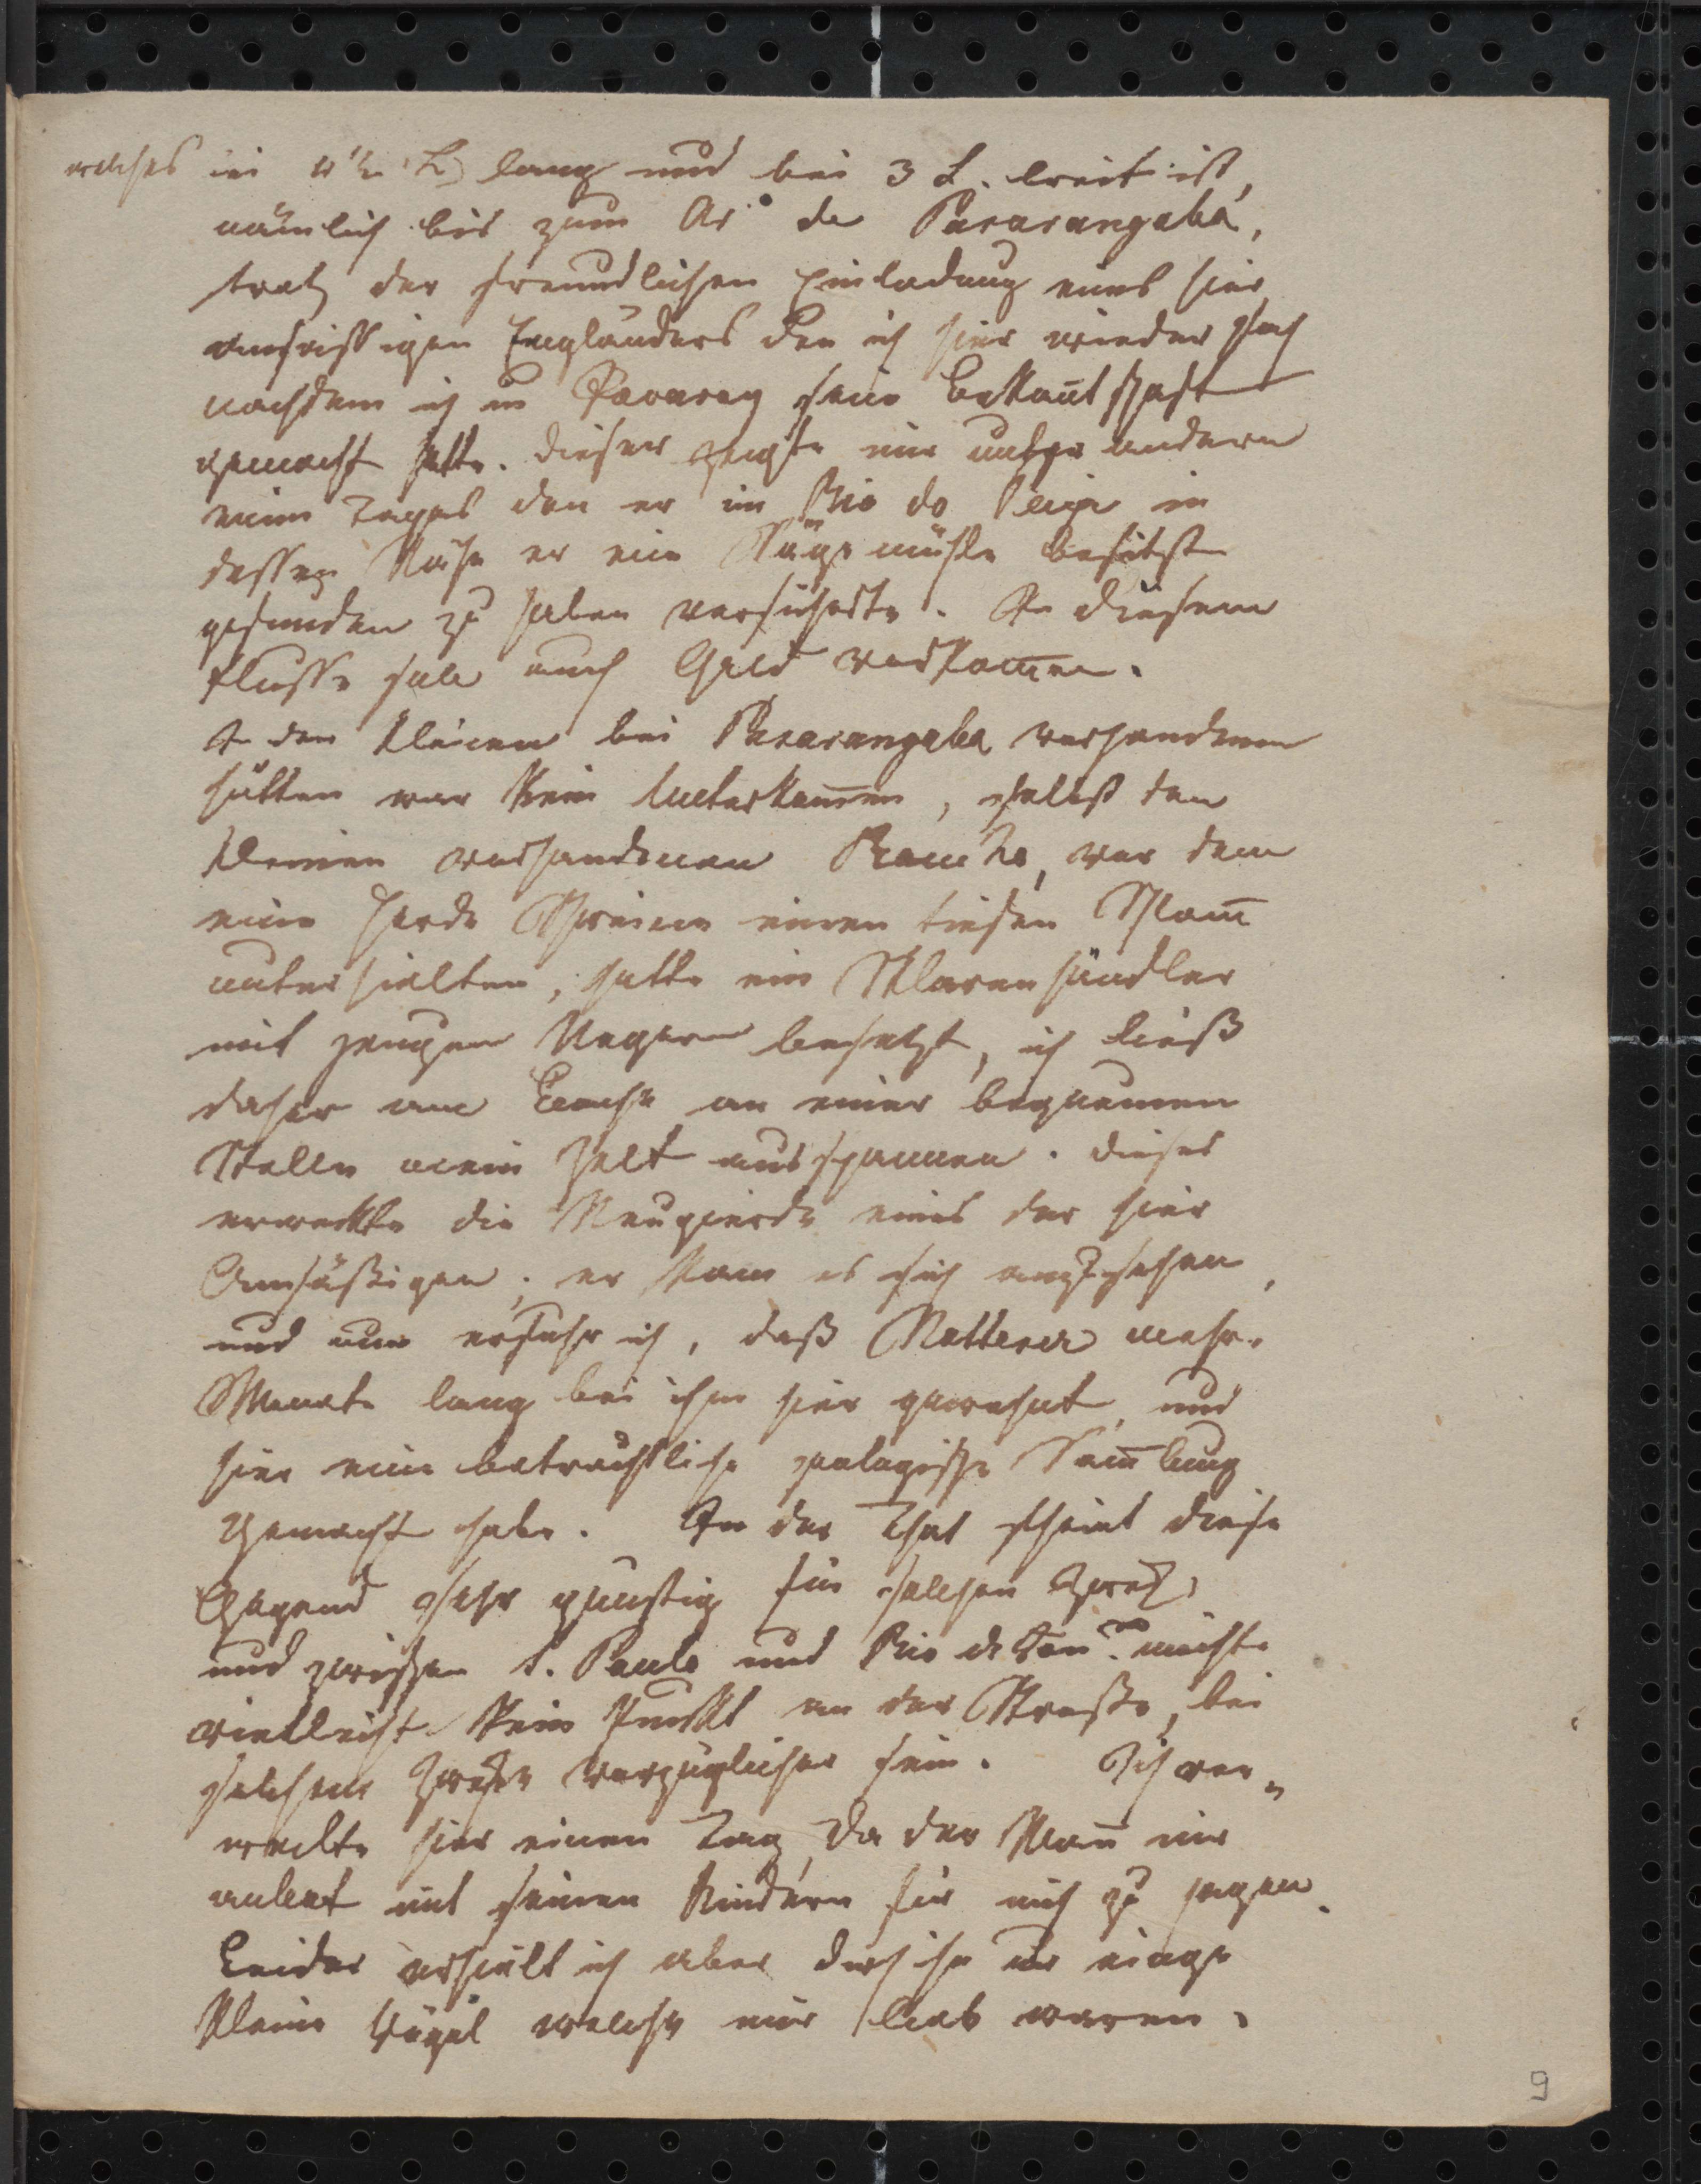 welches in 4½ L lang und bei 3 L. breit ist,
nämlich bis zum Ar.º de Pararangaba,
trotz der freundlichen Einladung eines hier
ansässigen Engländers den ich hier wieder sah
nachdem ich in sein Bekan̄tschaft
gemacht hatte. Dieser zeigte mir unter andern
einen Topas den er im Rio do Peixe in
dessen Nähe er eine Sägemühle besitzt
gefunden zu haben versicherte. In diesem
Flusse soll auch Gold vorkom̄en.
In den kleinen bei Pararangaba vorhandenen
Hütten war kein Unterkom̄en, selbst den
kleinen vorhandenen Rancho, vor dem
eine Herde Schweine einen tiefen Schlam̄
unterhielten, hatte ein Sklavenhändler
mit jungen Negern besetzt, ich ließ
daher am Bache an einer bequemen
Stelle mein Zelt ausspannen. Dieses
erweckte die Neugierde eines der hier
Ansäßigen; er kam es sich anzusehen,
und nun erfuhr ich, daß Natterer mehr.
Monate lang bei ihm hier gewohnt, und
hier eine beträchtliche zoologische Sam̄lung
gemacht habe. In der That scheint diese
Gegend sehr günstig für solchen Zweck,
und zwischen S. Paulo und Rio de Jan.ro möchte
vielleicht kein Punkt an der Straße, bei
solchem Zwecke vorzüglicher sein. Ich ver„
weilte hier einen Tag, da der Man̄ mir
anbot mit seinen Kindern für mich zu jagen.
Leider erhielt ich aber durch ihn nur einige
kleine Vögel welche mir lieb waren.
9